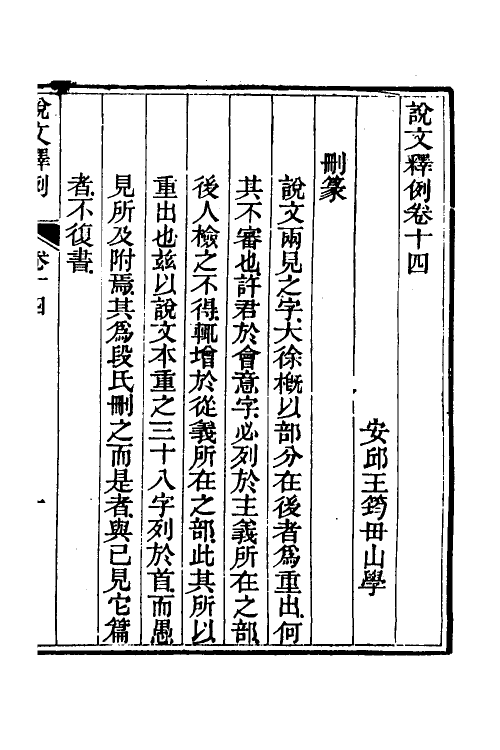 說文釋例卷十四
安邱王筠毌山學
刪篆
說文兩見之字大徐槪以部分在後者爲重出何
其不審也許君於會意字必列於主義所在之部
後人檢之不得輒增於從義所在之部此其所以
重出也兹以說文本重之三十八字列於首而愚
見所及附焉其爲段氏刪之而是者與已見它篇
者不復書
說文釋例
卷十四
一